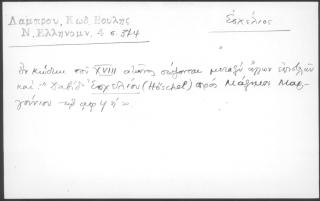 Λαμπρου, Κωδ. Βουλης
Ν. Ελληνομν. 4 σ. 374
Εσχέλιος
Ἐν κώδικι τοῦ XVIII αἰῶνος σώζονται μεταξὺ ἄλλων ἐπιστολῶν
καὶ Δαβὶδ Ἐσχελίου (Höschel) πρὸς Μάξιμον Μαρ-
γούνιον